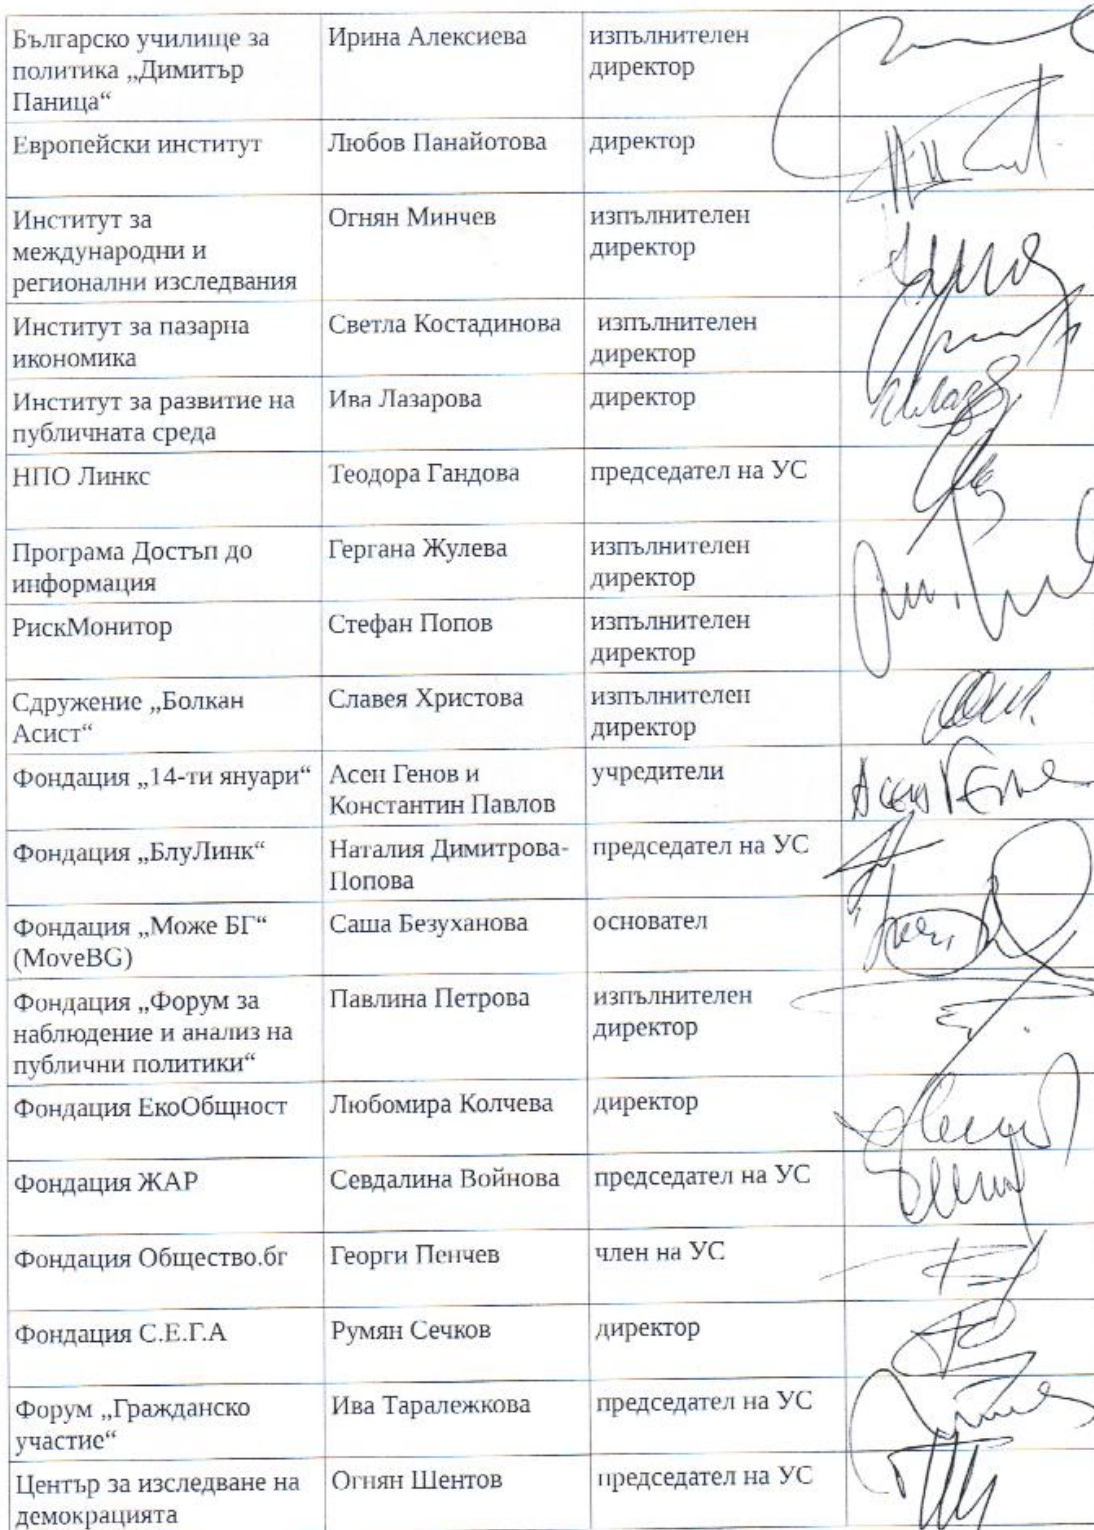 Българско училище за
политика „Димитър
Паница“
Ирина Алексиева
изпълнителен
директор
Европейски институт
Любов Панайотова
директор
Институт за
международни и
регионални изследвания
Огнян Минчев
изпълнителен
директор
Институт за пазарна
икономика
Светла Костадинова
изпълнителен
директор
Институт за развитие на
публичната среда
Ива Лазарова
директор
НПО Линкс
Теодора Гандова
председател на УС
Програма Достъп до
информация
Гергана Жулева
изпълнителен
директор
РискМонитор
Стефан Попов
изпълнителен
директор
Сдружение „Болкан
Асист“
Славея Христова
изпълнителен
директор
Фондация „14-ти януари“
Асен Генов и
Константин Павлов
учредители
Фондация „БлуЛинк“
Наталия Димитрова-
Попова
председател на УС
Фондация „Може БГ“
(MoveBG)
Саша Безуханова
основател
Фондация „Форум за
наблюдение и анализ на
публични политики“
Павлина Петрова
изпълнителен
директор
Фондация ЕкоОбщност
Любомира Колчева
директор
Фондация ЖАР
Севдалина Войнова
председател на УС
Фондация Общество.бг
Георги Пенчев
член на УС
Фондация С.Е.Г.А
Румян Сечков
директор
Форум „Гражданско
участие“
Ива Таралежкова
председател на УС
Център за изследване на
демокрацията
Огнян Шентов
председател на УС